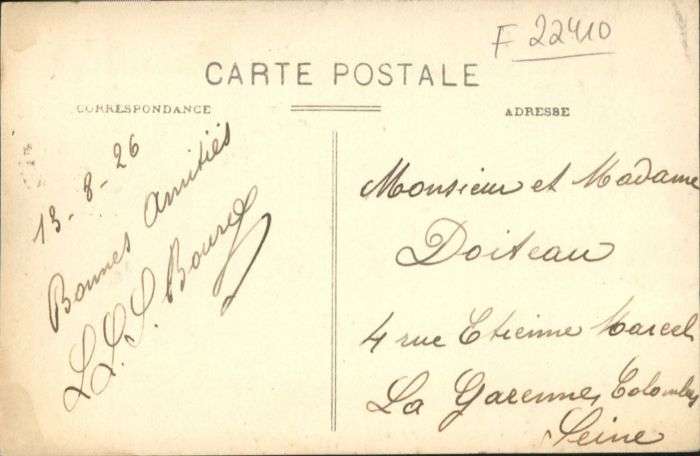 F 22410
CARTE POSTALE
CORRESPONDANCE
ADRESSE
13-8-26
Bonnes Amitiés
Monsieur et Madame
Doiteau
4 rue Etienne Marcel
La Garennes Colombes
Seine